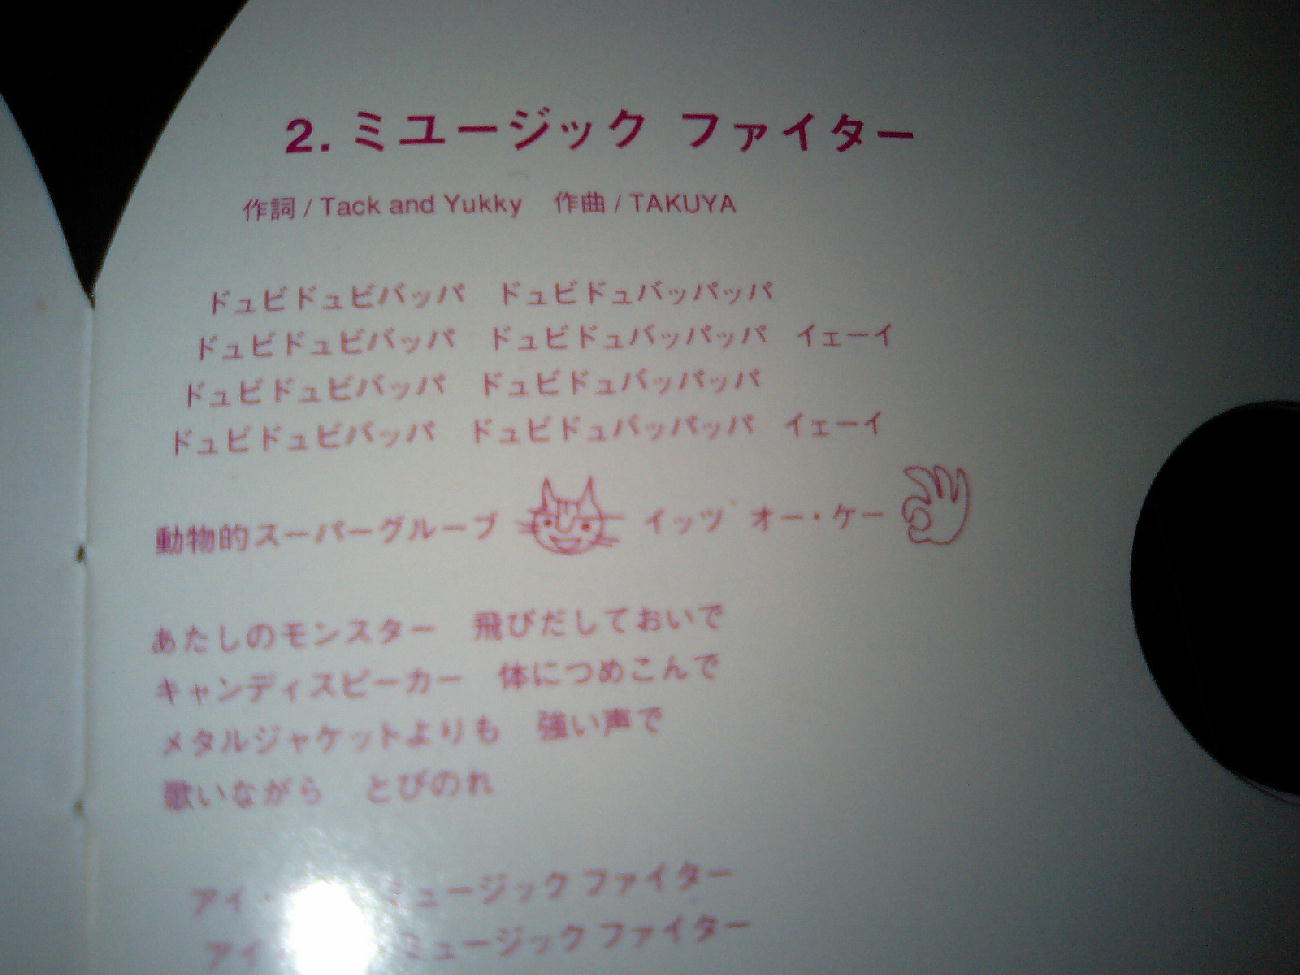 2. ミュージック ファイター
作詞 / Tack and Yukky　作曲 / TAKUYA
ドュビドュビバッパ　ドュビドュバッパッパ
ドュビドュビバッパ　ドュビドュバッパッパ　イェーイ
ドュビドュビバッパ　ドュビドュバッパッパ
ドュビドュビバッパ　ドュビドュバッパッパ　イェーイ
動物的スーパーグループ　イッツ オー・ケー
あたしのモンスター　飛びだしておいで
キャンディスピーカー　体につめこんで
メタルジャケットよりも　強い声で
歌いながら　とびのれ
アイ・　ミュージック ファイター
アイ　ミュージック ファイター